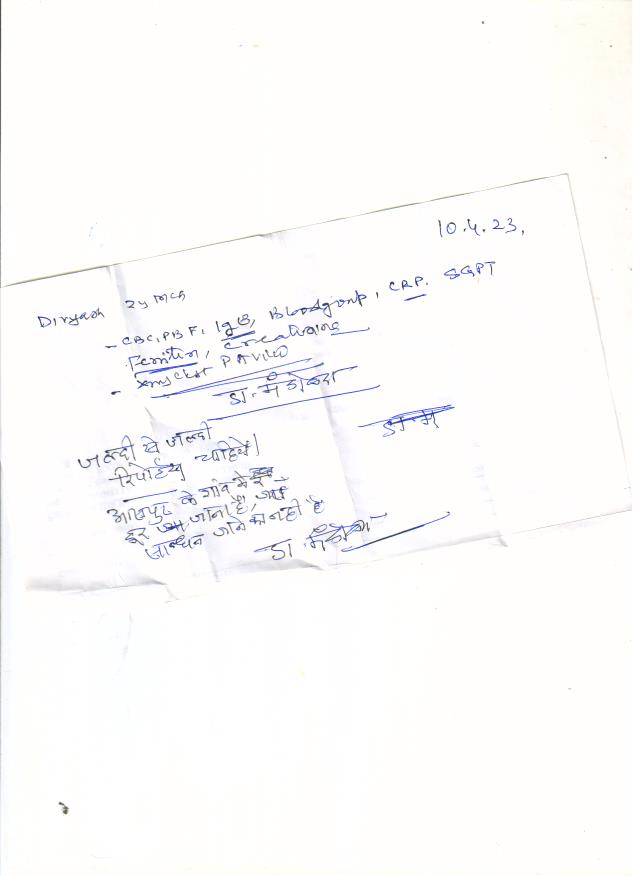 10.4.23,
Divyash 2y Mch
- CBC, PBF, IgE, Bloodgroup, CRP. SGPT
Ferritin, Creatinine
- Xray Chest PA View
डा. मं
जल्दी से जल्दी
रिपोर्टस् चाहिये।
के गांव में
दूर जाना है,
साधन जाने का नहीं है
डा.